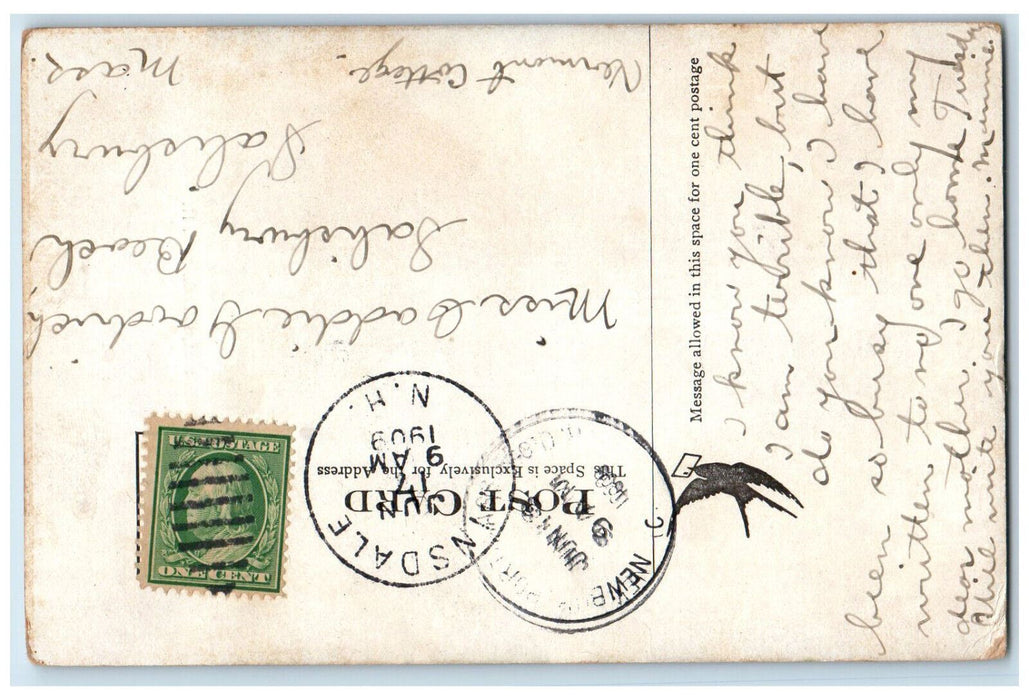 POST CARD
This Space is Exclusively for the Address
HINSDALE
JUN
17
9 AM
1909
N.H.
NEWBURYPORT
JUN
1909
U.S. POSTAGE
ONE CENT
Miss Caddie Goodrich
Salisbury Beach
Salisbury
Mass
Vermont Cottage.
Message allowed in this space for one cent postage
I know you think
I am terrible, but
do you know I have
been so busy that I have
written to no one only my
dear mother. I go home Tuesday
Will write you then. Minnie.